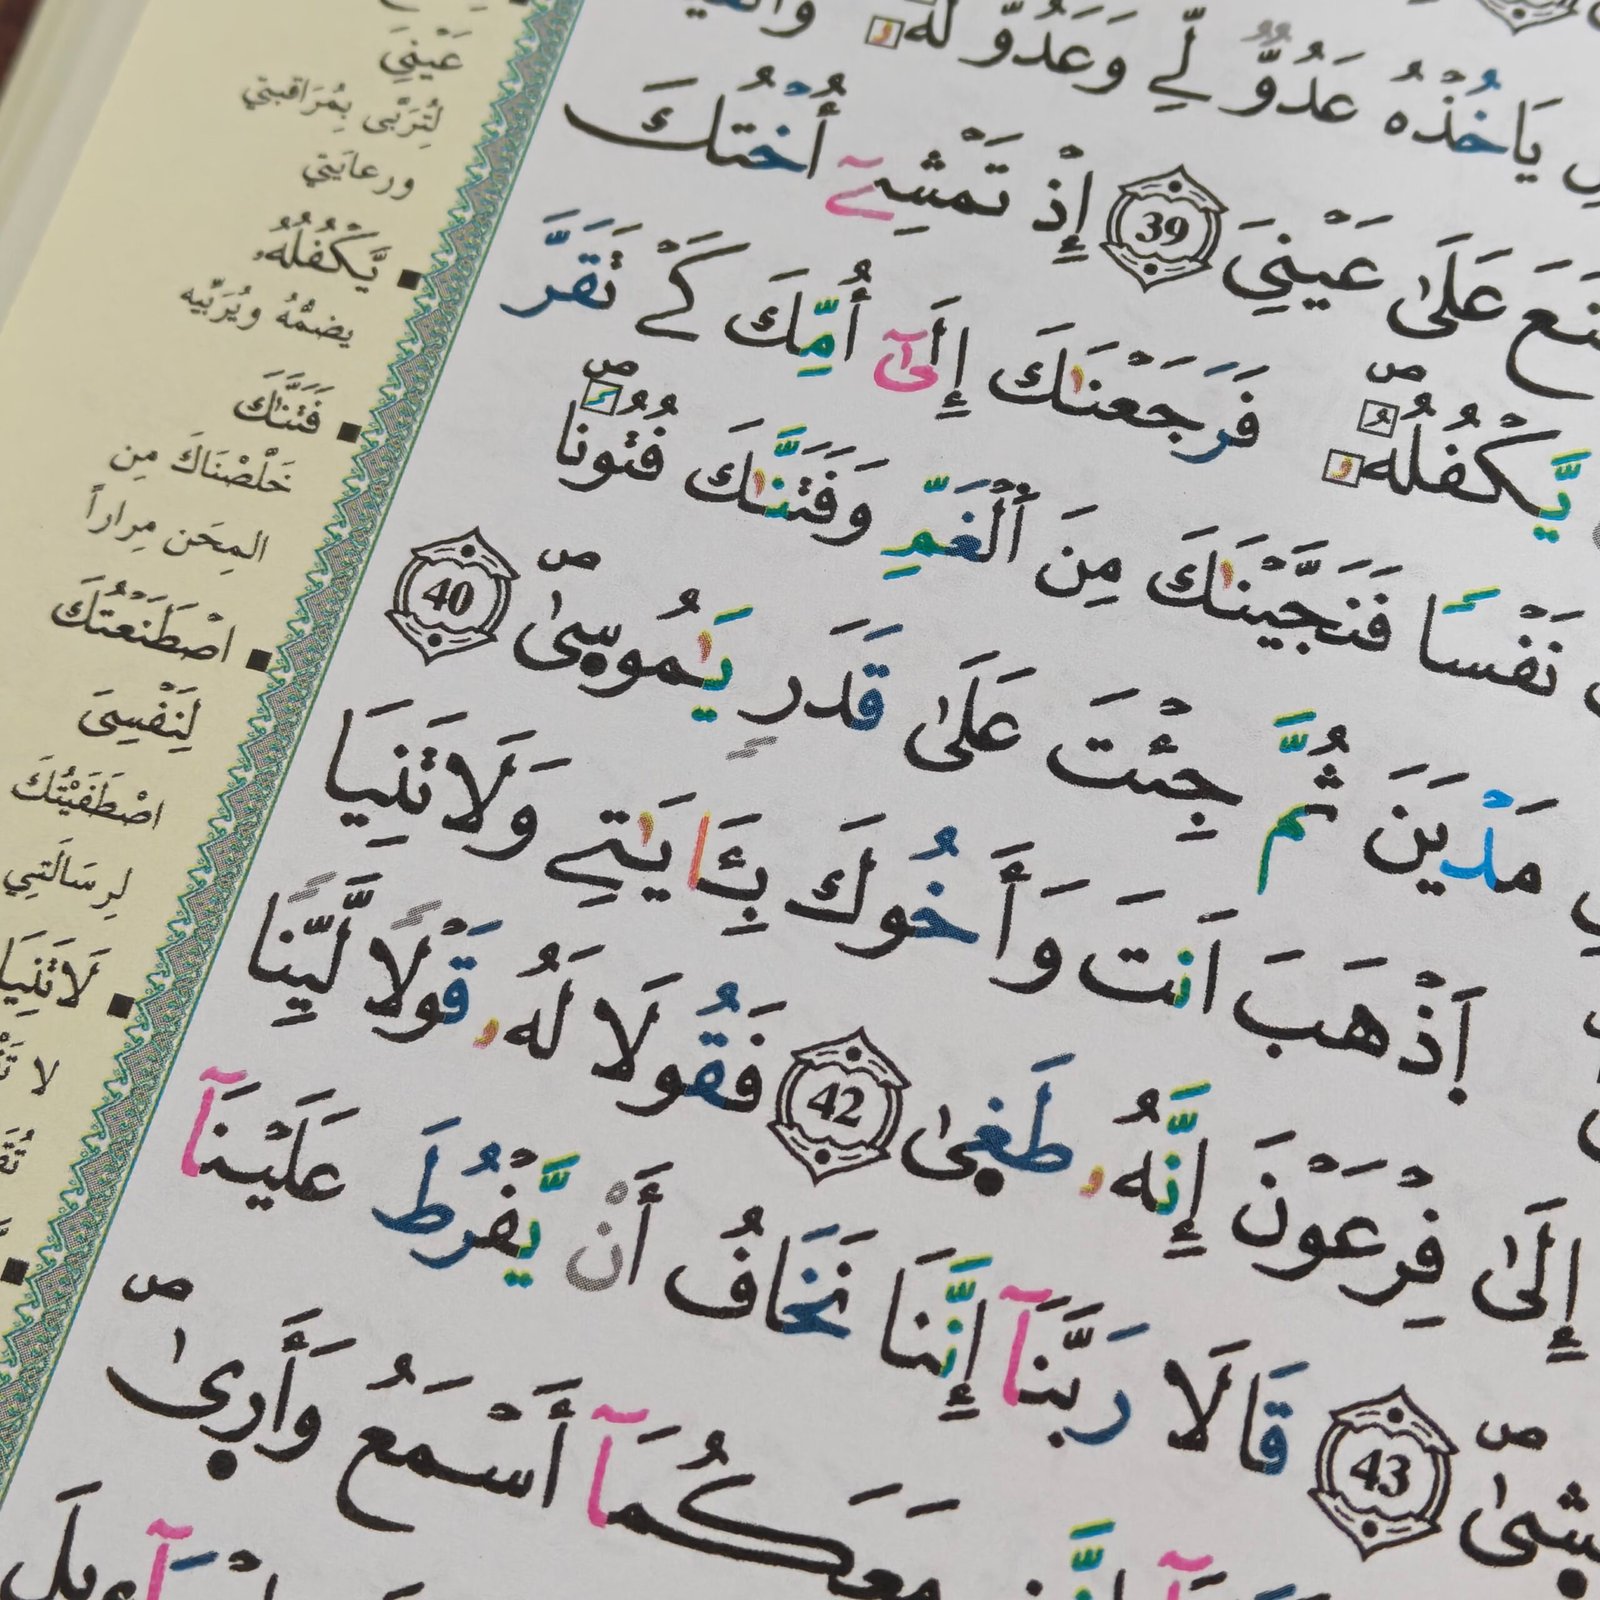 يَاخُذْهُ عَدُوٌّ لِّے وَعَدُوٌّ لَّهُۥ
عَلَىٰ عَيْنِيَ 39 إِذْ تَمْشِےٓ أُخْتُكَ
يَّكْفُلُهُۥ فَرَجَعْنَٰكَ إِلَىٰٓ أُمِّكَ كَےْ تَقَرَّ
نَفْساٗ فَنَجَّيْنَٰكَ مِنَ اَ۬لْغَمِّ وَفَتَنَّٰكَ فُتُوناٗ
مَدْيَنَ ثُمَّ جِئْتَ عَلَىٰ قَدَرٖ يَٰمُوسِىٰ 40
اَ۪ذْهَبَ اَنتَ وَأَخُوكَ بِـَٔايَٰتِے وَلَا تَنِيَا
إِلَىٰ فِرْعَوْنَ إِنَّهُۥ طَغِىٰ 42 فَقُولَا لَهُۥ قَوْلاٗ لَّيِّناٗ
43 قَالَا رَبَّنَآ إِنَّنَا نَخَافُ أَنْ يَّفْرُطَ عَلَيْنَآ
مَعَكُمَآ أَسْمَعُ وَأَرِىٰ
عَيْنِيَ
لِتُرَبَّى بِمُرَاقَبَتِي
ورعايَتِي
يَّكْفُلُهُۥ
يضمُّهُ ويُرَبِّيه
فَتَنَّٰكَ
خَلَّصْنَاكَ مِن
المِحَن مِراراً
اصْطَنَعْتُكَ
لِنَفْسِيَ
اصْطَفَيْتُكَ
لِرِسَالَتِي
لَا تَنِيَا
لا